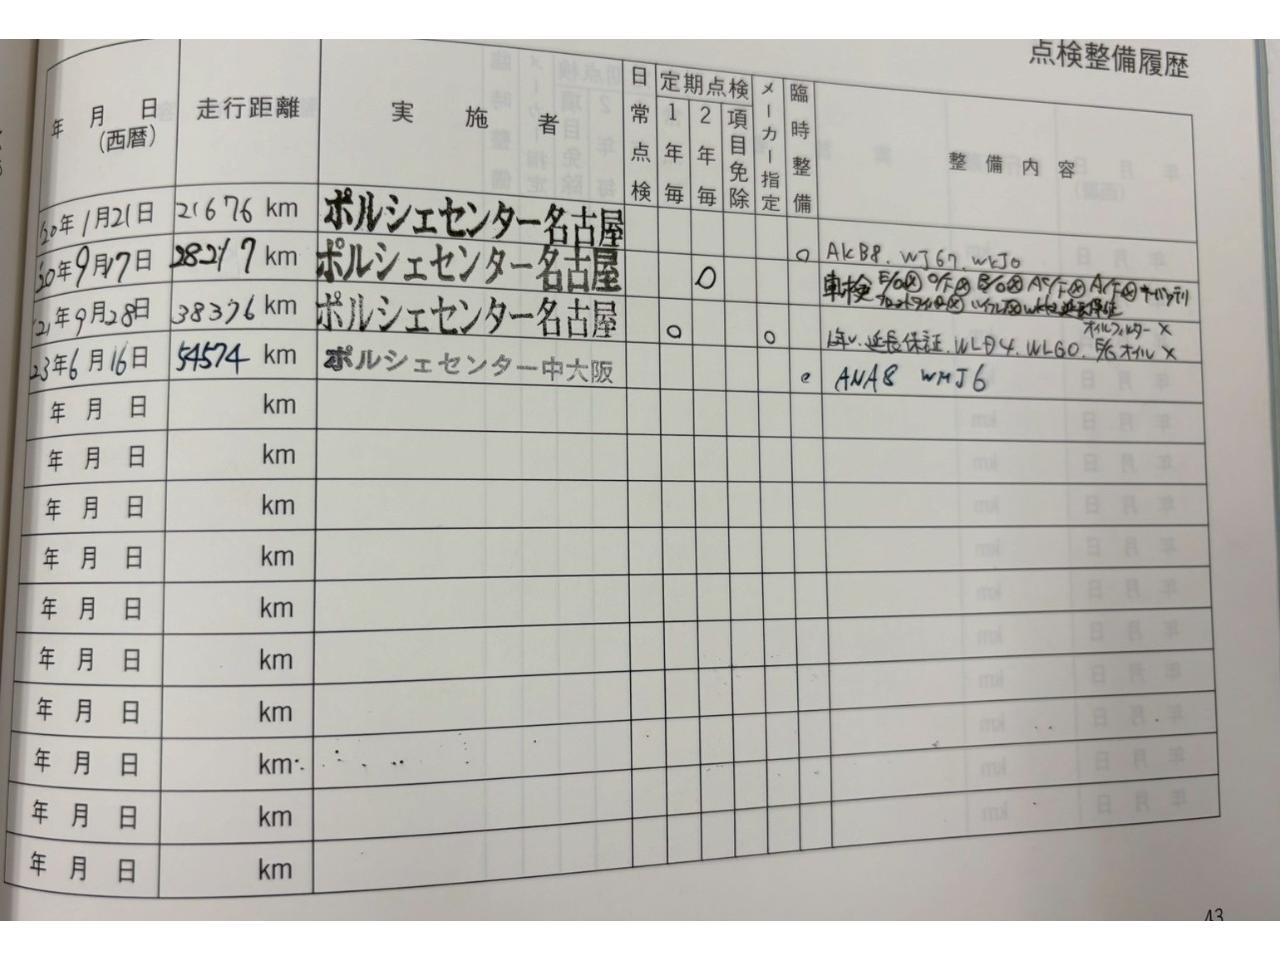 点検整備履歴
年 月 日 (西暦) 走行距離 実施者 日常点検 定期点検 1年毎 2年毎 項目免除 メーカー指定 臨時整備 整備内容
'20年1月21日 21676 km ポルシェセンター名古屋 ○ AKB8. WJ67. WLJ0
'20年9月17日 28217 km ポルシェセンター名古屋 ○ 車検
'21年9月28日 38376 km ポルシェセンター名古屋 ○ ○ オイルフィルター×
延長保証. WLD4. WLG0. オイル×
23年6月16日 54574 km ポルシェセンター中大阪 ○ ANA8 WMJ6
年 月 日 km
年 月 日 km
年 月 日 km
年 月 日 km
年 月 日 km
年 月 日 km
年 月 日 km
年 月 日 km
年 月 日 km
年 月 日 km
43